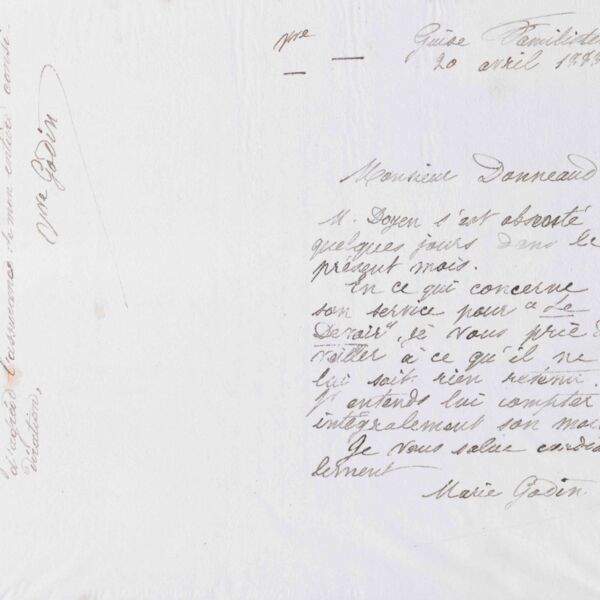 pre
Guise Familist
20 avril 188
Monsieur Donneaud
M. Doyen s'est absenté
quelques jours dans le
présent mois.
En ce qui concerne
son service pour "Le
Devoir", je vous prie
veiller à ce qu'il ne
lui soit rien retenu.
J'entends lui compter
intégralement son moi
Je vous salue cordia
lement
Marie Godin
l'assurance de mon entière consi
dération,
Vve Godin